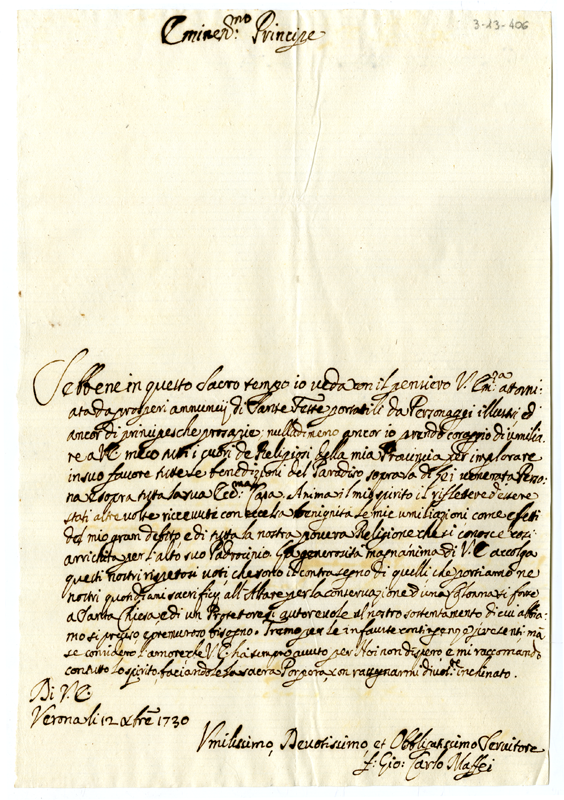 3-13-406
Eminen.mo Principe
Sebbene in questo Sacro tempo io veda con il pensiero V. Em.za attorni:
ata da prosperi annunzij di Sante Feste portatili da Personaggi illustri ed
ancor di principesche prosapie; nulladimeno ancor io prendo coraggio di umilia
re a V.E. meco tutti i cuori de Religiosi della mia Provincia per implorare
in suo favore tutte le benedizioni del Paradiso sopra la di Lei venerata Perso:
na e sopra tutta la sua Ecc.ma Casa. Anima il mio spirito il riflettere d'essere
stati altre volte ricevuti con eccelsa benignità le mie umiliazioni come effetti
del mio gran debito e di tutta la nostra povera Religione che si conosce così
arrichita per l'alto suo Padrocinio. La generosità magnanima di V.E. accolga
questi nostri rispetosi voti che sono il contrasegno di quelli che portiamo ne
nostri quotidiani sacrificij all'Altare per la conservazione d'una Colonna sì forte
a Santa Chiesa e di un Protetore sì autorevole al nostro sostentamento di cui abbia:
mo sì preciso e premuroso bisogno. Tremo per le infauste contingenze presenti: mà
se considero l'amore che V.E. hà sempre avuto per Noi non dispero e mi raccomando
con tutto lo spirito, baciandole la sacra Porpora, con rassegnarmi divot.te inchinato.
Di V.E.
Verona li 12 Xbre 1730
Vmilissimo, Devotissimo et Obbligatissimo Servitore
f. Gio: Carlo Maffei